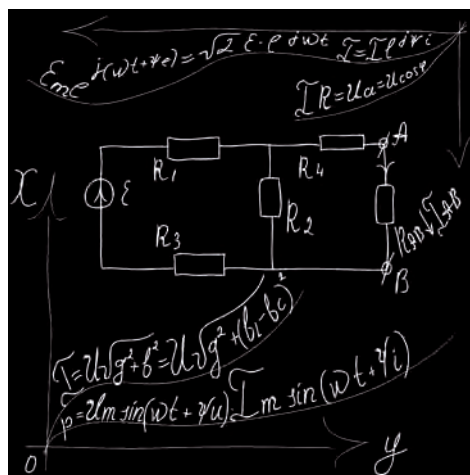 Ɛme^j(wt+ψe) = √2 Ɛ·e^jwt I = Ie^jψi
IR = Ua = ucosφ
R1
R4
A
X
Ɛ
R2
RAB
IAB
R3
B
I = U√g²+b² = U√g²+(b1-bc)²
p = Um sin(wt+ψu) Im sin(wt+ψi)
0
y